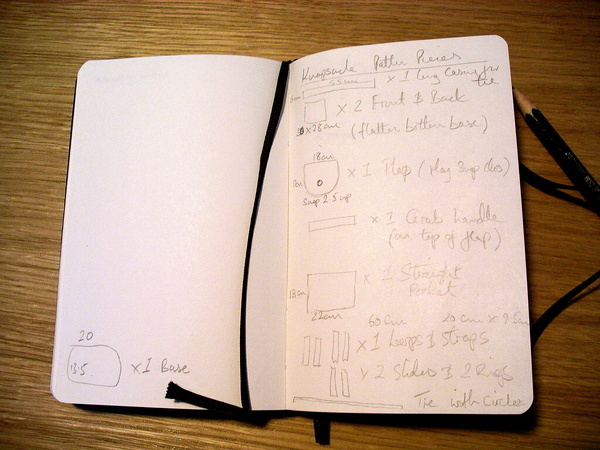 20
13.5
x 1 Base
Knapsack Pattern Pieces
55cm
x 1 long Casing for
tie
x 2 Front & Back
x 28cm
(flatten bottom base)
18cm
x 1 Flap (Mag Snap clos)
Snap 2.5 up
x 1 Grab handle
(on top of flap)
x 1 Straight
Pocket
18cm
22cm
60cm 20cm x 9.5cm
x 1 Loops & Straps
x 2 Sliders & 2 Rings
Tie with Circles